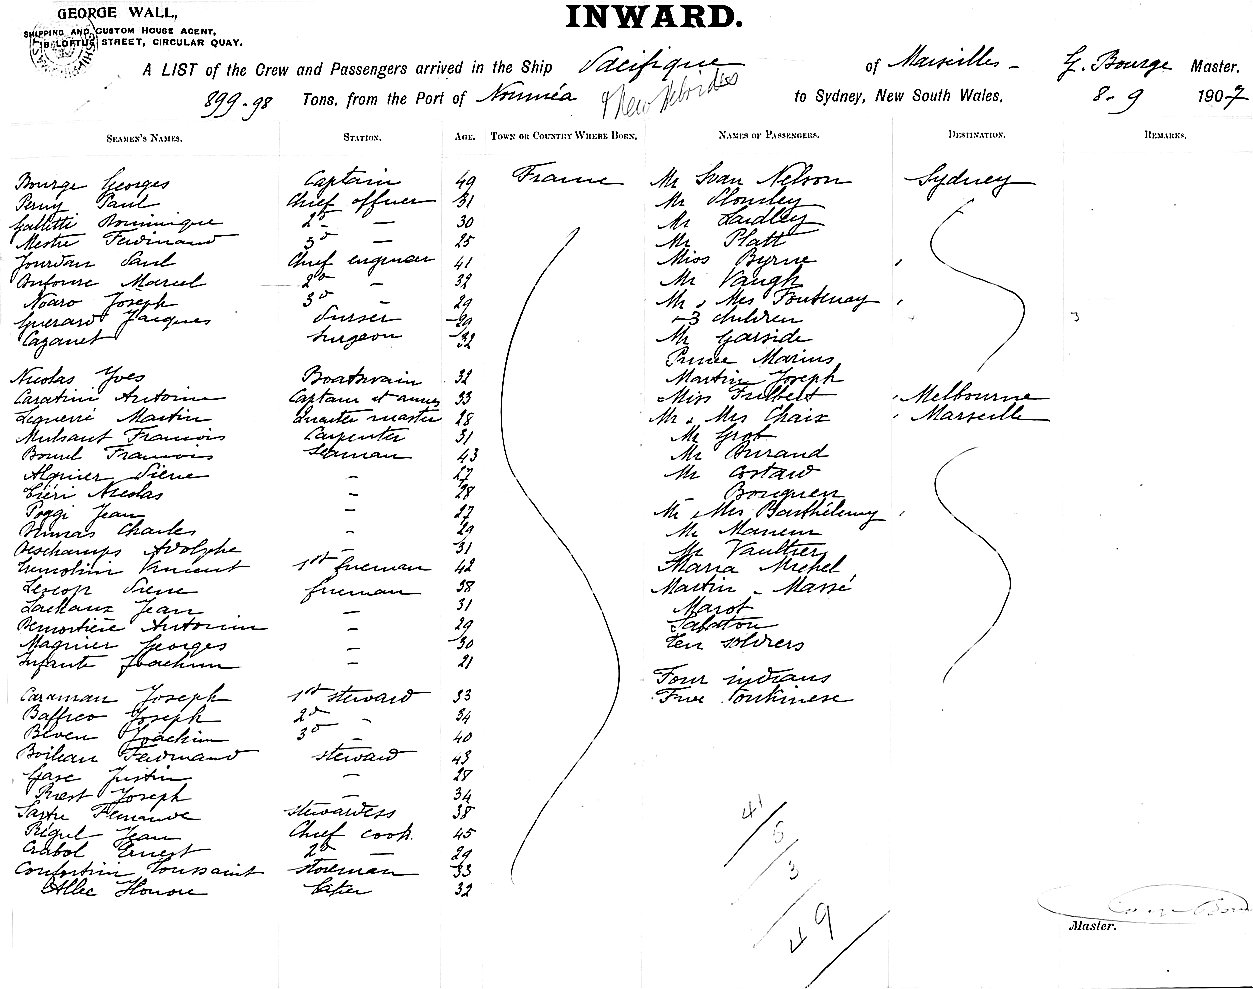 GEORGE WALL,
SHIPPING AND CUSTOM HOUSE AGENT,
LOFTUS STREET, CIRCULAR QUAY.
INWARD.
A LIST of the Crew and Passengers arrived in the Ship Pacifique of Marseilles - G. Bourge Master.
899.98 Tons, from the Port of Nouméa & New Hebrides to Sydney, New South Wales, 8-9 1907
SEAMEN'S NAMES. STATION. AGE. TOWN OR COUNTRY WHERE BORN. NAMES OF PASSENGERS. DESTINATION. REMARKS.
Bourge Georges Captain 49 France Mr Ivan Nelson Sydney
Perny Paul Chief officer 31 Mr Plomley
Galletti Dominique 2d - 30 Mr Laidley
Mestre Ferdinand 3d - 25 Mr Platt
Jourdan Paul Chief engineer 41 Miss Byrne
Marcel 2d - 32 Mr Vaugh
Noaro Joseph 3d - 29 Mr & Mrs Fontenay
Guerard Jacques Purser 29 3 children 3
Cazanet Surgeon 32 Mr Garside
Prince Marius
Nicolas Yves Boatswain 32 Martin Joseph
Caratini Antoine Captain d'armes 33 Miss Fulbert Melbourne
Martin Quarter master 28 Mr & Mrs Chaix Marseille
Mulsant Francois Carpenter 31 Mr Grob
Bourel Francois Seaman 43 Mr Durand
Pierre - 27 Mr Costard
Nicolas - 28 Bouquen
Poggi Jean - 27 Mr & Mrs Barthélemy
Dumas Charles - 29 Mr
Deschamps Adolphe - 31 Mr Vaultier
Vincent 1st fireman 42 Maria Michel
Lescop Pierre fireman 38 Martin - Massé
Jean - 31 Marot
Antonin - 29 Sabaton
Magnier Georges - 30 Ten soldiers
Infante Joachim - 21
Four indians
Caraman Joseph 1st steward 33 Five tonkinese
Baffico Joseph 2d - 34
Joachim 3d - 40
Boileau Ferdinand steward 43
Gasc Justin - 28
Joseph - 34
Sastre stewardess 38
Jean Chief cook 45
Crabol Ernest 2d - 29
Toussaint storeman 33
Allec Honore baker 32
41
5
3
49
Master.